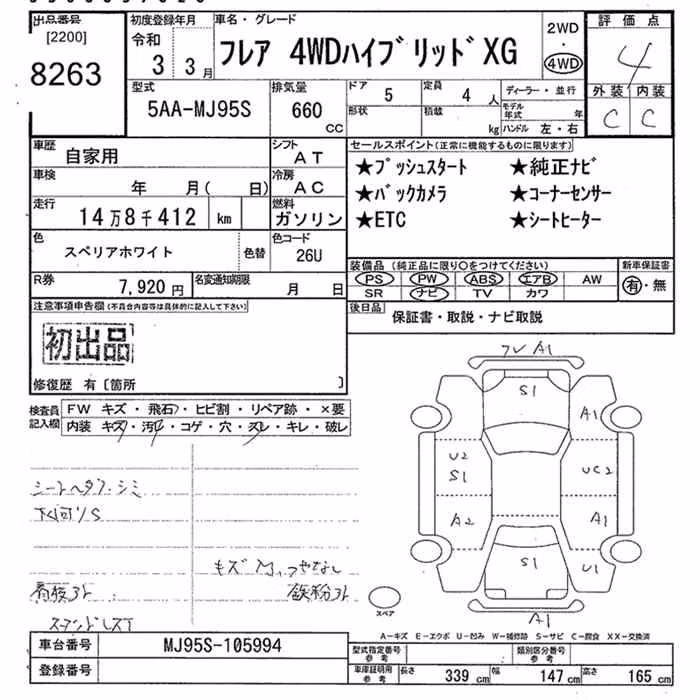 出品番号
[2200]
8263
初度登録年月
令和
3 3月
車名・グレード
フレア 4WDハイブリッドXG
2WD
・
4WD
評価点
4
外装 内装
C C
型式
5AA-MJ95S
排気量
660
CC
ドア 5
定員 4 人
形状
積載 kg
ディーラー・並行
モデル年式 年
ハンドル 左・右
車歴
自家用
シフト
AT
車検
年 月( 日)
冷房
AC
走行
14万8千412 km
燃料
ガソリン
色
スペリアホワイト
色替
色コード
26U
R券
7,920円
名変通知期限
月 日
セールスポイント(正常に機能するものに限ります)
★プッシュスタート ★純正ナビ
★バックカメラ ★コーナーセンサー
★ETC ★シートヒーター
装備品 (純正品に限り○をつけてください)
PS PW ABS エアB AW
SR ナビ TV カワ
新車保証書
有・無
後日品
保証書・取説・ナビ取説
注意事項申告欄(不具合内容等は具体的に記入して下さい)
初出品
修復歴 有〔箇所 〕
検査員記入欄
FW キズ・飛石・ヒビ割・リペア跡・×要
内装 キズ・汚レ・コゲ・穴・スレ・キレ・破レ
シートヘタリ・シミ
下回りS
キズ
鉄粉
フレ A1
S1
A1
U2
S1
UC2
A2
A1
S1
U1
A1
スペア
A-キズ E-エクボ U-凹み W-補修跡 S-サビ C-腐食 XX-交換済
車台番号
MJ95S-105994
登録番号
型式指定番号
参考
類別区分番号
参考
車庫証明用
参考
長さ 339 cm 幅 147 cm 高さ 165 cm